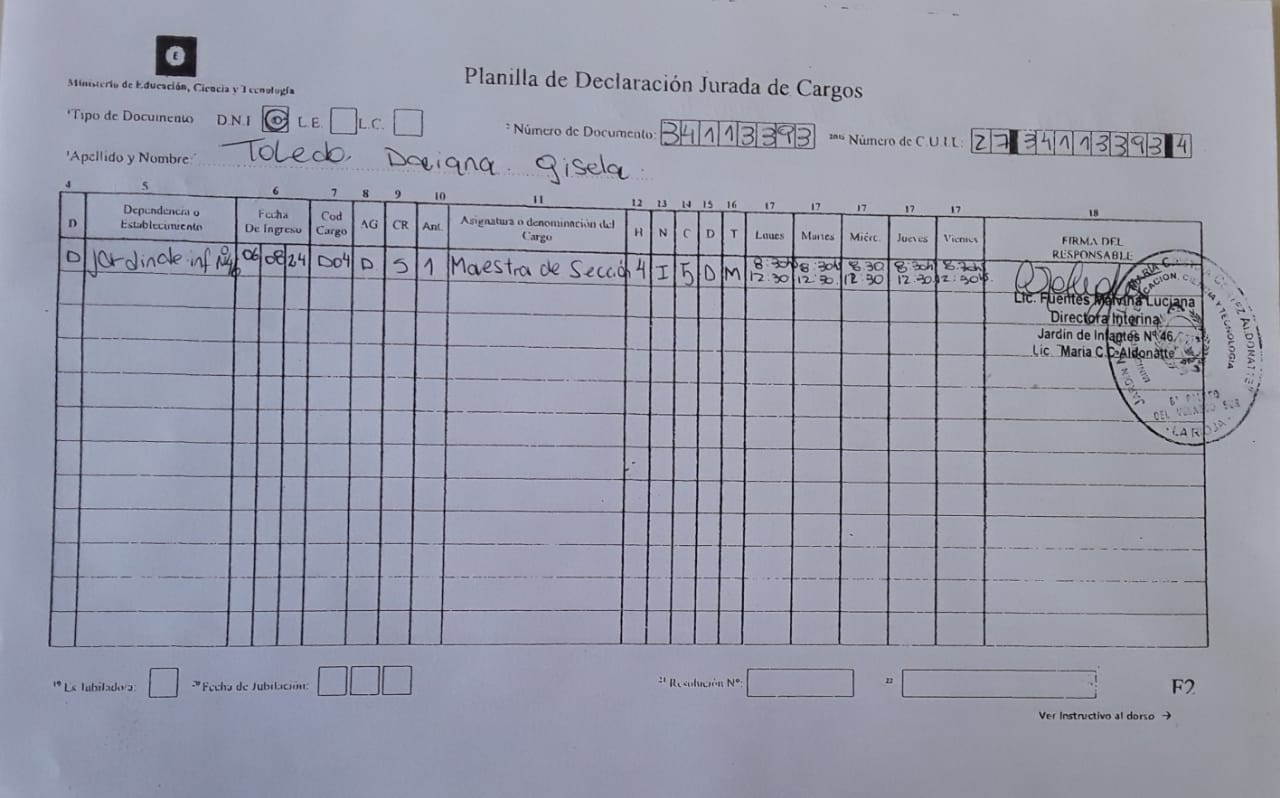 E
Ministerio de Educación, Ciencia y Tecnología
Planilla de Declaración Jurada de Cargos
¹Tipo de Documento D.N.I L.E. L.C. ² Número de Documento: 34113393 Número de C.U.I.L: 27 34113393 4
³Apellido y Nombre: Toledo Daiana Gisela
4 5 6 7 8 9 10 11 12 13 14 15 16 17 17 17 17 17 18
D Dependencia o Establecimiento Fecha De Ingreso Cod Cargo AG CR Ant. Asignatura o denominación del Cargo H N C D T Lunes Martes Miérc. Jueves Viernes FIRMA DEL RESPONSABLE
D Jardin de inf Nº46 06 08 24 D04 D S 1 Maestra de Sección 4 I 5 D M 8:30h 12:30 8:30h 12:30 8:30 12:30 8:30h 12:30 8:30h 12:30hs
Lic. Fuentes Melvina Luciana
Directora Interina
Jardin de Infantes Nº 46
Lic. Maria C.C. Aldonatte
LA RIOJA
¹⁹ Es Jubilado/a: ²⁰ Fecha de Jubilación: ²¹ Resolución Nº: 22 F2
Ver Instructivo al dorso →